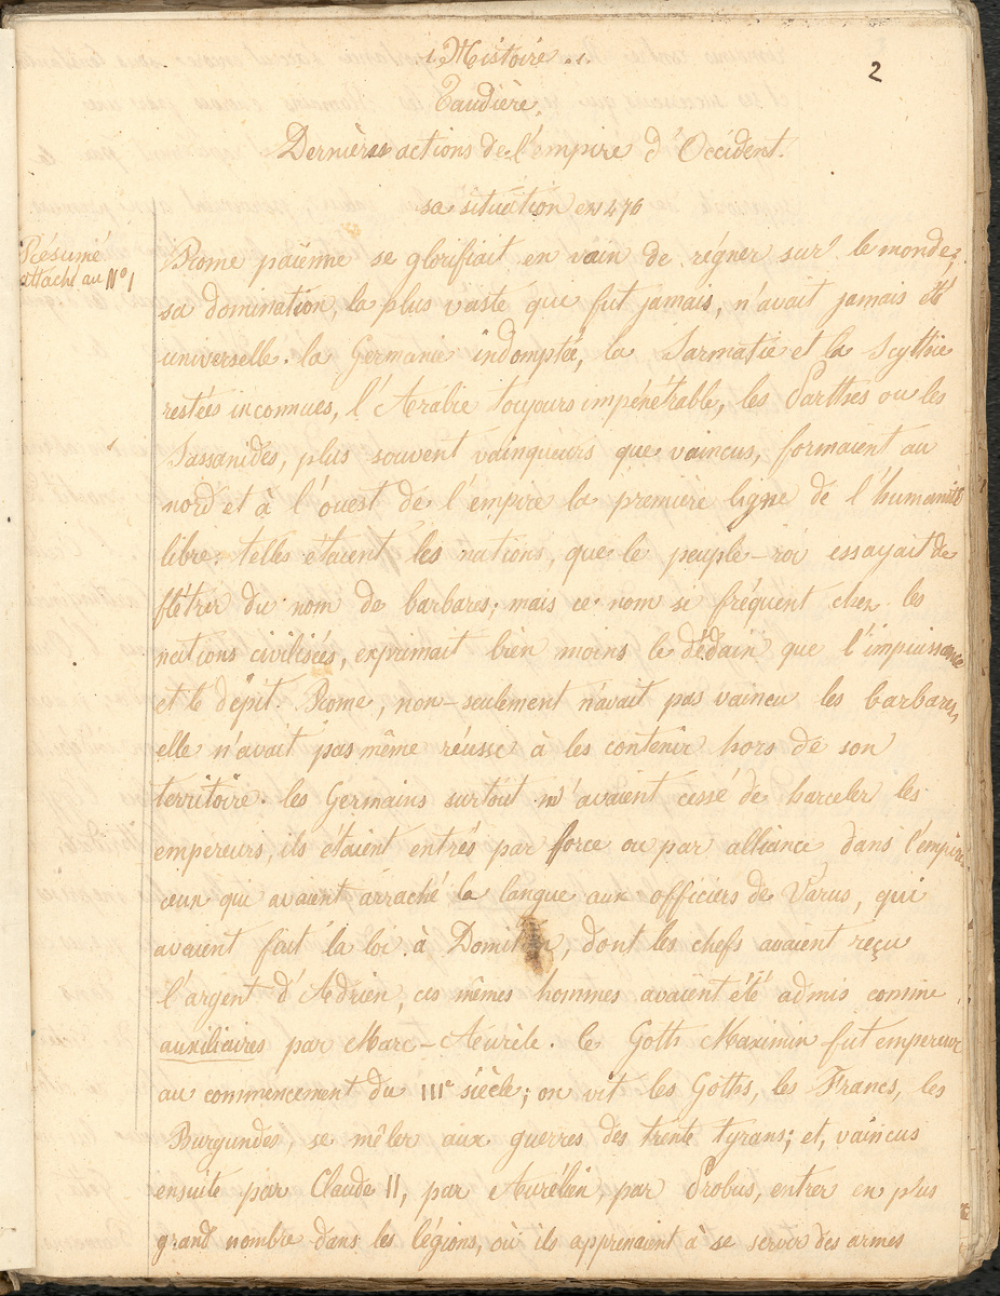 Histoire
2
Taudière.
Dernières actions de l'empire d'Occident.
sa situation en 476
Résumé
attaché au N° 1
Rome païenne se glorifiait en vain de régner sur le monde;
sa domination, la plus vaste qui fut jamais, n'avait jamais été
universelle. la Germanie indomptée, la Sarmatie et la Scythie
restées inconnues, l'Arabie toujours impénétrable, les Parthes ou les
Sassanides, plus souvent vainqueurs que vaincus, formaient au
nord et à l'ouest de l'empire la première ligne de l'humanité
libre: telles étaient les nations, que le peuple-roi essayait de
flétrir du nom de barbares; mais ce nom si fréquent chez les
nations civilisées, exprimait bien moins le dédain que l'impuissance
et le dépit. Rome, non-seulement n'avait pas vaincu les barbares,
elle n'avait pas même réussi à les contenir hors de son
territoire. les Germains surtout n'avaient cessé de harceler les
empereurs, ils étaient entrés par force ou par alliance dans l'empire
ceux qui avaient arraché la langue aux officiers de Varus, qui
avaient fait la loi à Domitien, dont les chefs avaient reçu
l'argent d'Adrien, ces mêmes hommes avaient été admis comme
auxiliaires par Marc-Aurèle. le Goth Maximin fut empereur
au commencement du IIIe siècle; on vit les Goths, les Francs, les
Burgundes, se mêler aux guerres des trente tyrans; et, vaincus
ensuite par Claude II, par Aurélien, par Probus, entrer en plus
grand nombre dans les légions, où ils apprenaient à se servir des armes